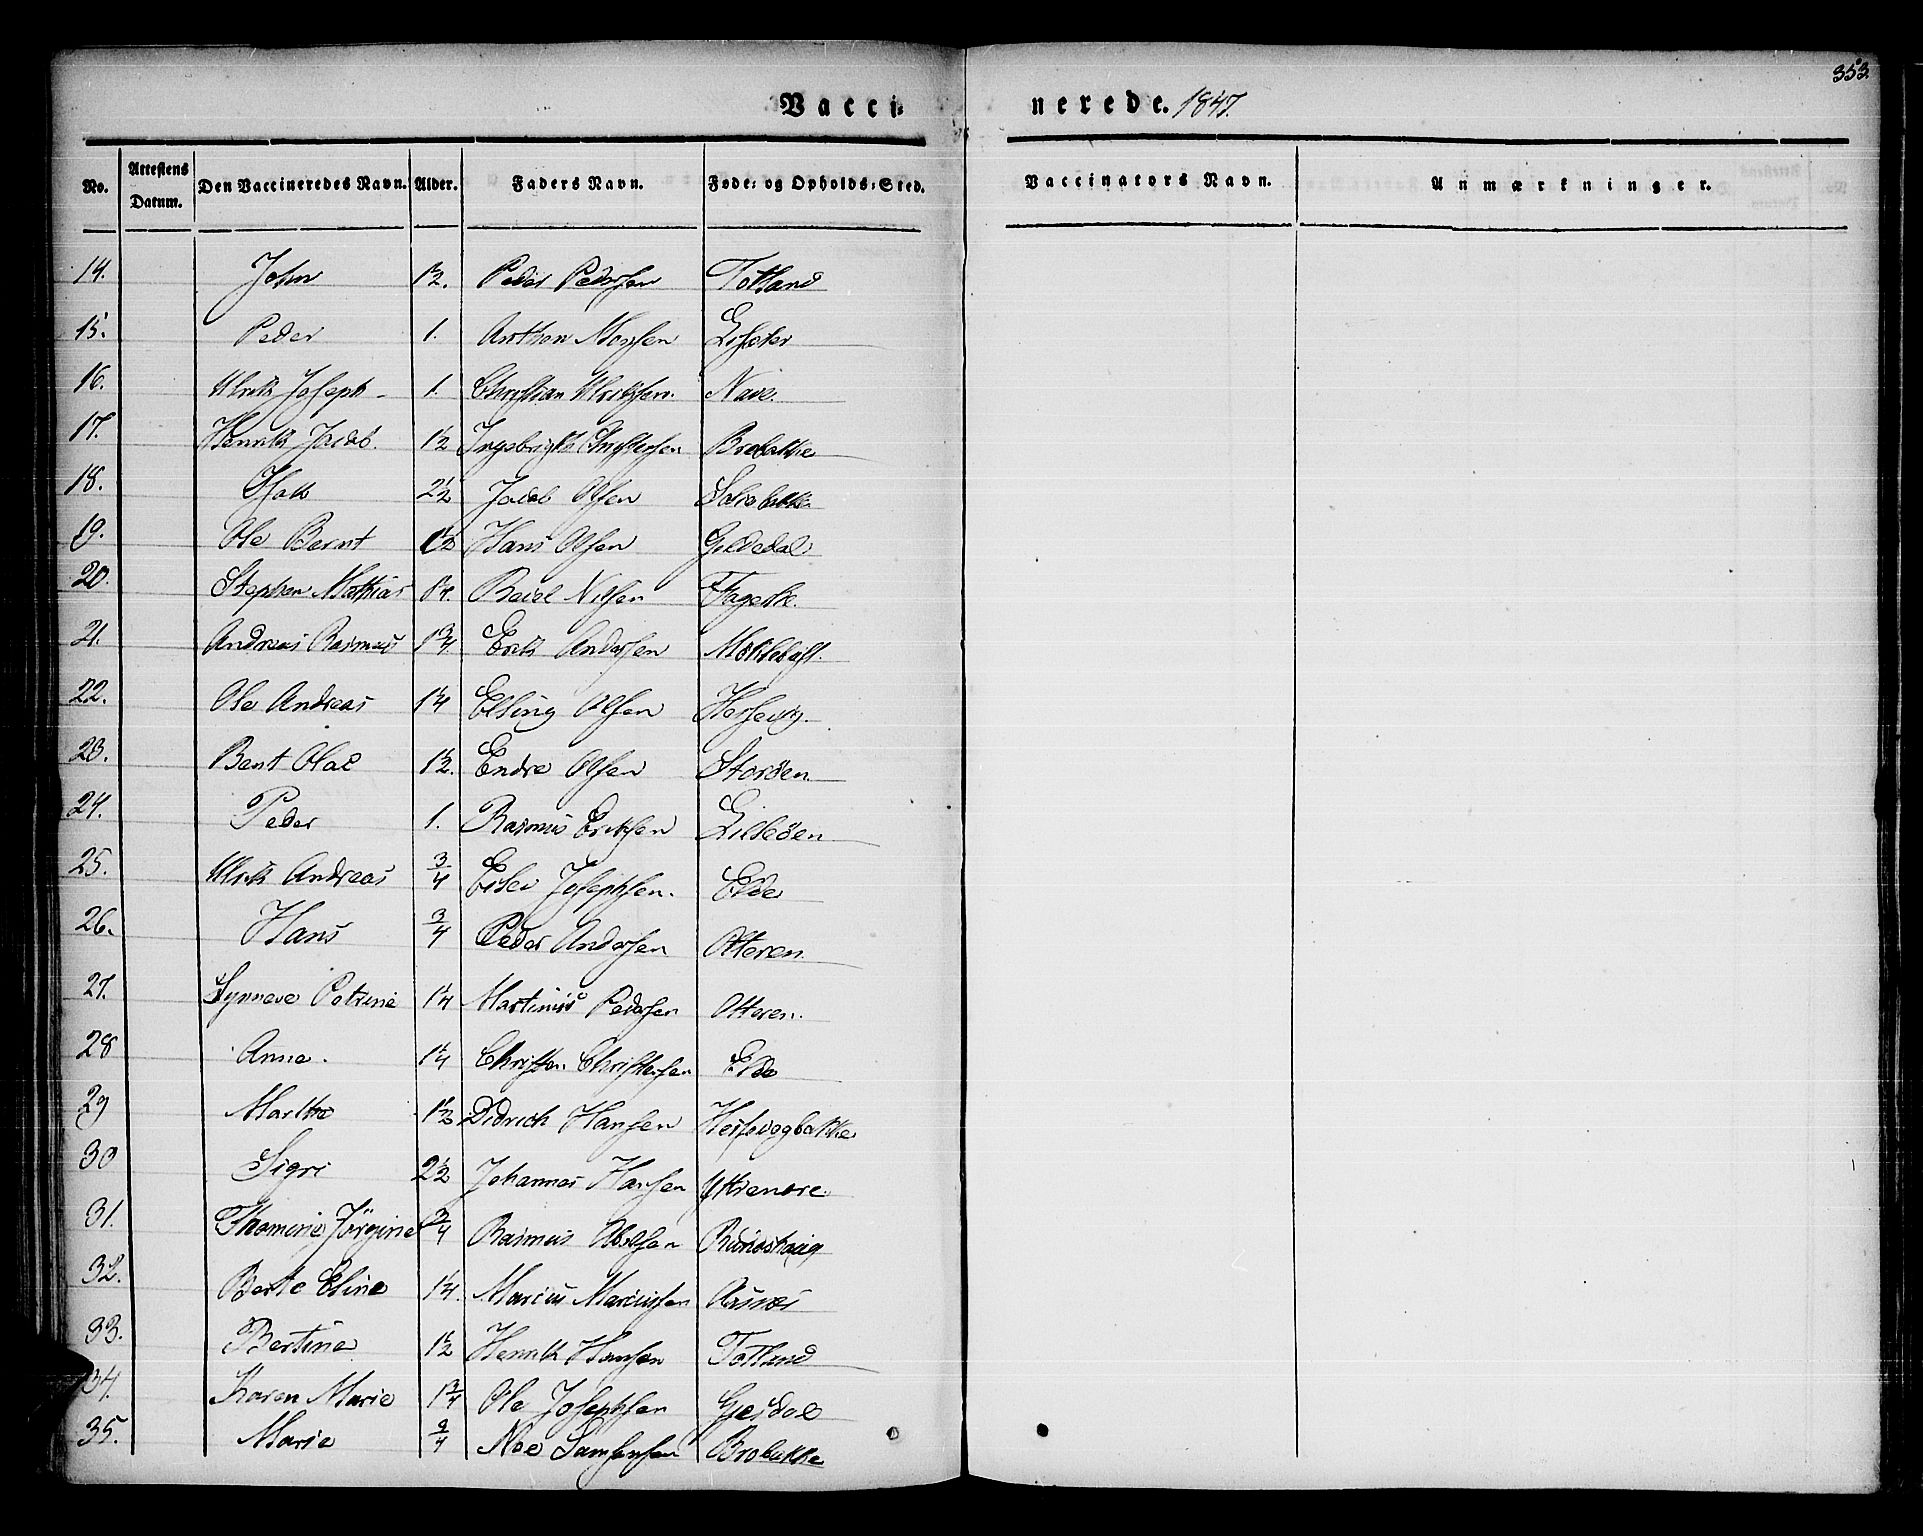 353.
Vacci=
nerede. 1847.
No. Attestens Datum. Den Vaccineredes Navn. Alder. Faders Navn. Føde= og Opholds=Sted. Vaccinators Navn. Anmærkninger.
14. John 1½. Peder Pedersen Totland
15. Peder 1. Anthon Monsen
16. Ulrik Joseph 1. Christian Ulriksen. Nave.
17. Henrik Jacob. 1½ Ingebrigt Brobakke
18. 2½ Jacob Olsen
19. Ole Bernt 1½ Hans Olsen
20. Stephen Mathias Nilsen
21. Andreas Rasmus 1¾. Erik Andersen
22. Ole Andreas 1¼ Elling Olsen
23. Bent Olai 1½. Endre Olsen Storøen.
24. Peder 1. Rasmus Eriksen Lilleøen
25. Ulrik Andreas ¾ Josephsen. Elde
26. Hans ¾ Peder Andersen Otteren.
27. Synneve Petrine 1¼ Martinus Pedersen Otteren.
28 Anne. 1¼ Christen Christensen Elde
29 Marthe 1½ Didrich Hansen
30 Sigri 2½ Johannes Hansen
31. Thomine Jörgine ¾ Rasmus
32. Berte Eline 1¼. Marius Mariussen Aasnes
33. Bertine 1½ Henrik Hansen Totland
34. Karen Marie 1¾ Ole Josephsen
35. Marie ¾ Noe Samsonsen Brobakke